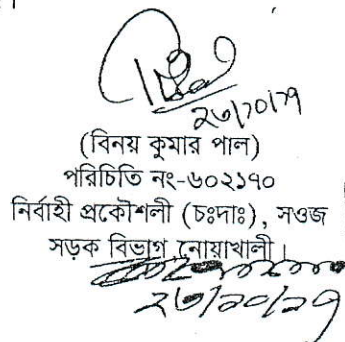 ২৬/১০/১৭
(বিনয় কুমার পাল)
পরিচিতি নং-৬০২১৭০
নির্বাহী প্রকৌশলী (চঃদাঃ), সওজ
সড়ক বিভাগ, নোয়াখালী।
২৬/১০/১৭